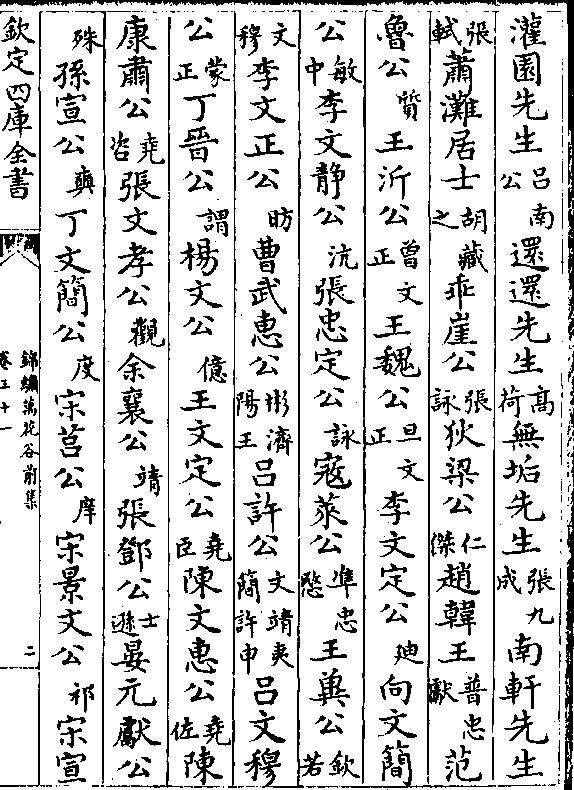 灌園先生呂南公還還先生高荷無垢先生張九成南軒先生
張軾蕭灘居士胡藏之乖崖公張詠狄梁公仁傑趙韓王普忠獻范
魯公質王沂公曾文正王魏公旦文正李文定公迪向文簡
公敏中李文靜公沆張忠定公詠寇萊公準忠愍王冀公欽若
文穆李文正公昉曹武惠公彬濟陽王呂許公文靖夷簡許申呂文穆
公蒙正丁晉公謂楊文公億王文定公堯臣陳文惠公堯佐陳
康肅公堯咨張文孝公觀余襄公靖張鄧公士遜晏元獻公
殊孫宣公奭丁文簡公度宋莒公庠宋景文公祁宋宣
欽定四庫全書
錦繡萬花谷前集
二